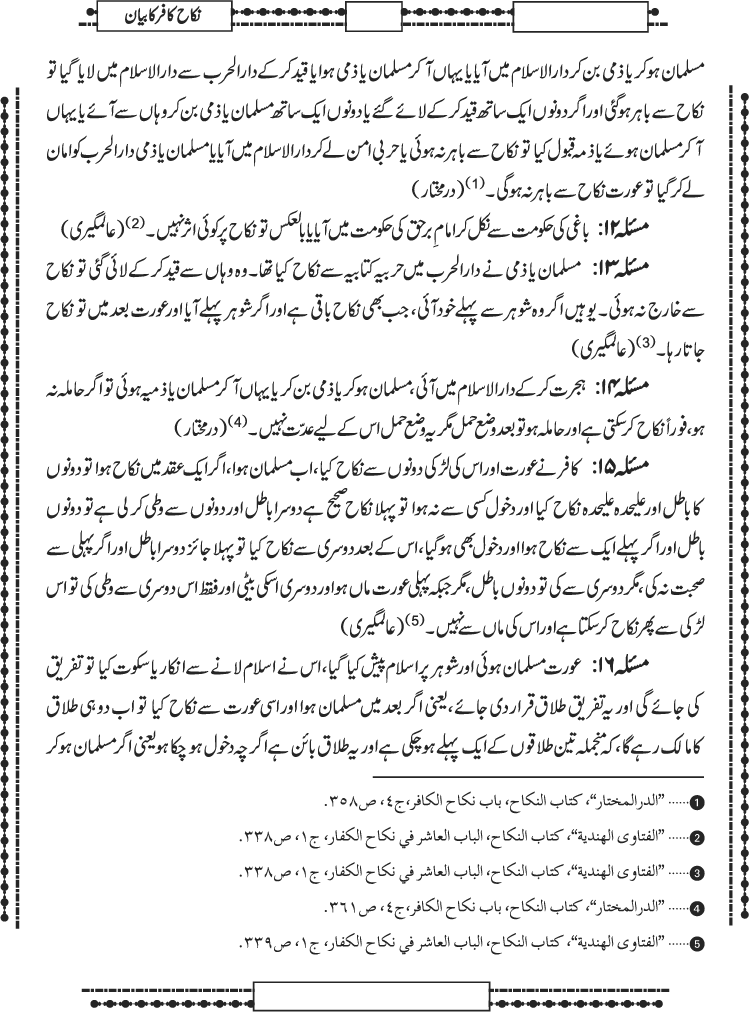 نکاح کافر کا بیان
مسلمان ہوکر یا ذمی بن کر دارالاسلام میں آیا یا یہاں آکر مسلمان یا ذمی ہوا یا قید کرکے دارالحرب سے دارالاسلام میں لایا گیا تو
نکاح سے باہر ہوگئی اور اگر دونوں ایک ساتھ قید کرکے لائے گئے یا دونوں ایک ساتھ مسلمان یا ذمی بن کر وہاں سے آئے یا یہاں
آکر مسلمان ہوئے یا ذمہ قبول کیا تو نکاح سے باہر نہ ہوئی یا حربی امن لے کر دارالاسلام میں آیا یا مسلمان یا ذمی دارالحرب کو امان
لے کر گیا تو عورت نکاح سے باہر نہ ہوگی۔ (1) (درمختار)
مسئلہ ۱۲: باغی کی حکومت سے نکل کر امامِ برحق کی حکومت میں آیا یا بالعکس تو نکاح پر کوئی اثر نہیں۔ (2) (عالمگیری)
مسئلہ ۱۳: مسلمان یا ذمی نے دارالحرب میں حربیہ کتابیہ سے نکاح کیا تھا۔ وہ وہاں سے قید کرکے لائی گئی تو نکاح
سے خارج نہ ہوئی۔ یوہیں اگر وہ شوہر سے پہلے خود آئی، جب بھی نکاح باقی ہے اور اگر شوہر پہلے آیا اور عورت بعد میں تو نکاح
جاتا رہا۔ (3) (عالمگیری)
مسئلہ ۱۴: ہجرت کرکے دارالاسلام میں آئی، مسلمان ہوکر یا ذمی بن کر یا یہاں آکر مسلمان یا ذمیہ ہوئی تو اگر حاملہ نہ
ہو، فوراً نکاح کرسکتی ہے اور حاملہ ہو تو بعد وضع حمل مگر یہ وضع حمل اس کے لیے عدّت نہیں۔ (4) (درمختار)
مسئلہ ۱۵: کافر نے عورت اور اس کی لڑکی دونوں سے نکاح کیا، اب مسلمان ہوا، اگر ایک عقد میں نکاح ہوا تو دونوں
کا باطل اور علیحدہ علیحدہ نکاح کیا اور دخول کسی سے نہ ہوا تو پہلا نکاح صحیح ہے دوسرا باطل اور دونوں سے وطی کرلی ہے تو دونوں
باطل اور اگر پہلے ایک سے نکاح ہوا اور دخول بھی ہوگیا، اس کے بعد دوسری سے نکاح کیا تو پہلا جائز دوسرا باطل اور اگر پہلی سے
صحبت نہ کی، مگر دوسری سے کی تو دونوں باطل، مگر جبکہ پہلی عورت ماں ہو اور دوسری اسکی بیٹی اور فقط اس دوسری سے وطی کی تو اس
لڑکی سے پھر نکاح کرسکتا ہے اور اس کی ماں سے نہیں۔ (5) (عالمگیری)
مسئلہ ۱۶: عورت مسلمان ہوئی اور شوہر پر اسلام پیش کیا گیا، اس نے اسلام لانے سے انکار یا سکوت کیا تو تفریق
کی جائے گی اور یہ تفریق طلاق قرار دی جائے، یعنی اگر بعد میں مسلمان ہوا اور اسی عورت سے نکاح کیا تو اب دو ہی طلاق
کا مالک رہے گا، کہ منجملہ تین طلاقوں کے ایک پہلے ہوچکی ہے اور یہ طلاق بائن ہے اگرچہ دخول ہوچکا ہو یعنی اگر مسلمان ہوکر
1 ...... ”الدرالمختار“، کتاب النکاح، باب نکاح الکافر،ج٤، ص٣٥٨.
2 ...... ”الفتاوی الھندیة“، کتاب النکاح، الباب العاشر في نکاح الکفار، ج١، ص٣٣٨.
3 ...... ”الفتاوی الھندیة“، کتاب النکاح، الباب العاشر في نکاح الکفار، ج١، ص٣٣٨.
4 ...... ”الدرالمختار“، کتاب النکاح، باب نکاح الکافر،ج٤، ص٣٦١.
5 ...... ”الفتاوی الھندیة“، کتاب النکاح، الباب العاشر في نکاح الکفار، ج١، ص٣٣٩.